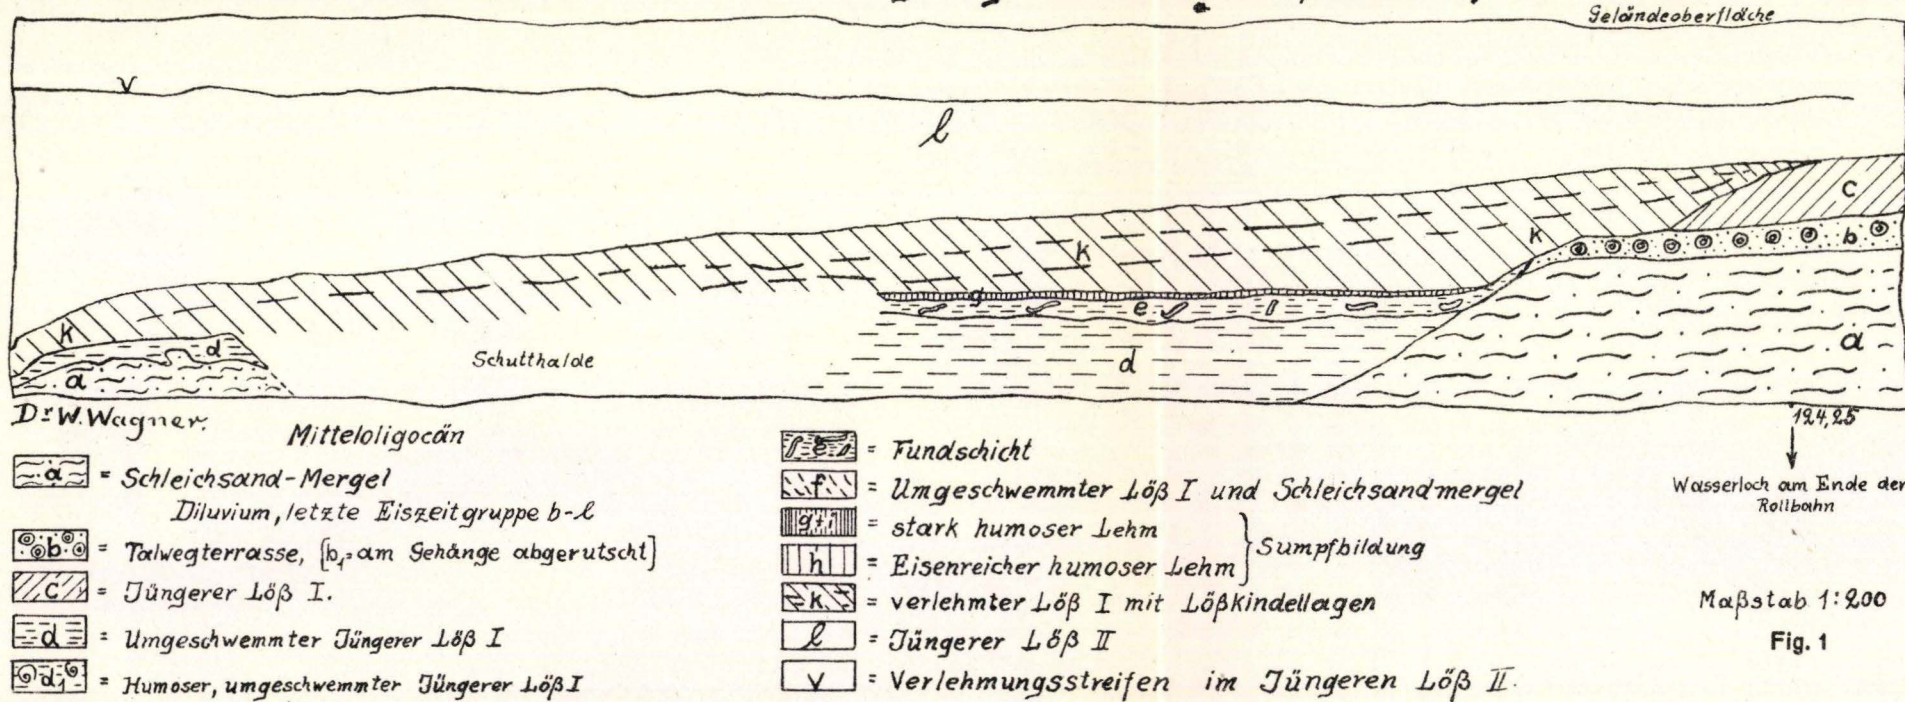 Geländeoberfläche
v
l
c
k
k
b
g
e
k
d
d
a
a
Schutthalde
Dr W. Wagner.
124,25
Wasserloch am Ende der
Rollbahn
Mitteloligocän
a = Schleichsand-Mergel
Diluvium, letzte Eiszeitgruppe b-l
b = Talwegterrasse, [b₁ = am Gehänge abgerutscht]
c = Jüngerer Löß I.
d = Umgeschwemmter Jüngerer Löß I
d₁ = Humoser, umgeschwemmter Jüngerer Löß I
e = Fundschicht
f = Umgeschwemmter Löß I und Schleichsandmergel
g+i = stark humoser Lehm
h = Eisenreicher humoser Lehm
Sumpfbildung
k = verlehmter Löß I mit Lößkindellagen
l = Jüngerer Löß II
v = Verlehmungsstreifen im Jüngeren Löß II.
Maßstab 1:200
Fig. 1